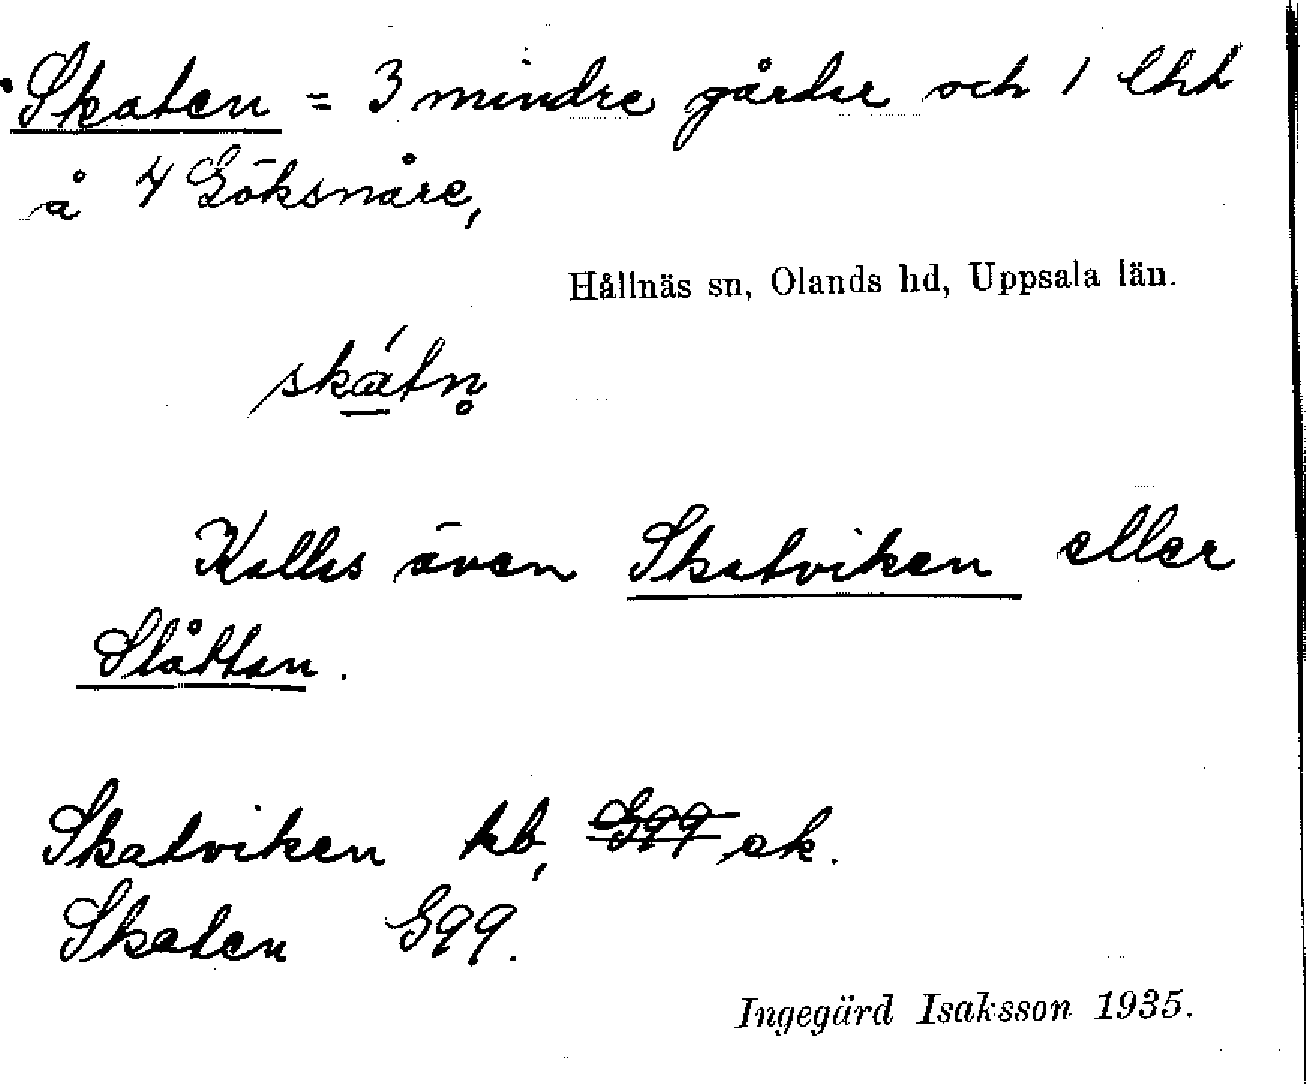 Skaten = 3 mindre gårdar och 1 lht
å 4 Göksnåre,
Hållnäs sn, Olands hd, Uppsala län.
skátn̥
Kallas även Skatviken eller
Slåttan.
Skatviken kb, G99 ek.
Skaten G99.
Ingegärd Isaksson 1935.